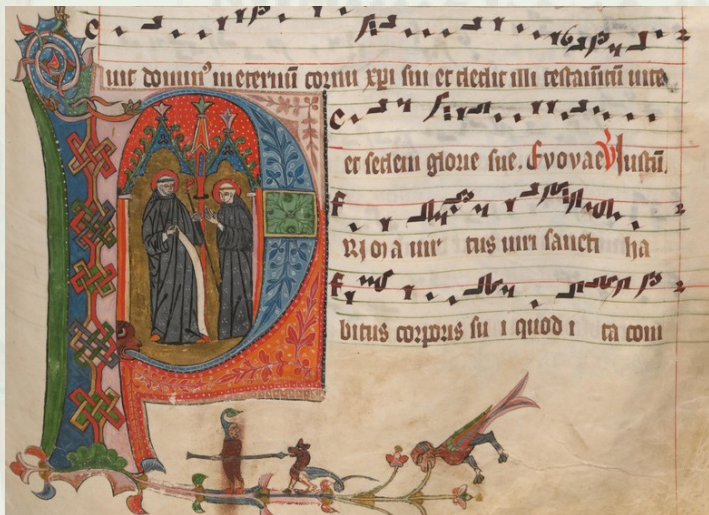 uit domin⁹ in eternū cornu xp̄i sui et dedit illi testam̄tū uite
et sedem glorie sue. Evovae V Iustū.
RI ora uir tus uiri sancti ha
bitus corporis su i quod i ta com